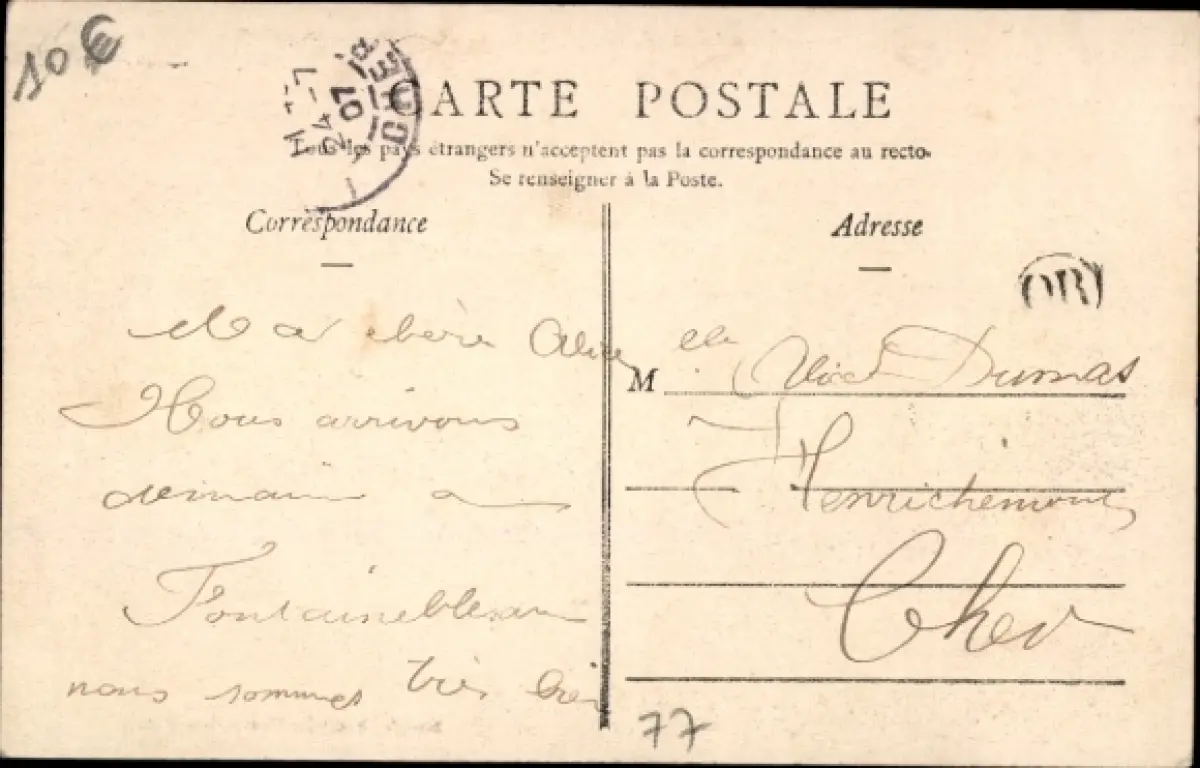 10 €
24-7
07
CHER
CARTE POSTALE
Tous les pays étrangers n'acceptent pas la correspondance au recto.
Se renseigner à la Poste.
Correspondance
Ma chère Alice
Nous arrivons
demain a
Fontainebleau
nous sommes très bien
Adresse
OR
M elle Dumas
Henrichemont
Cher
77